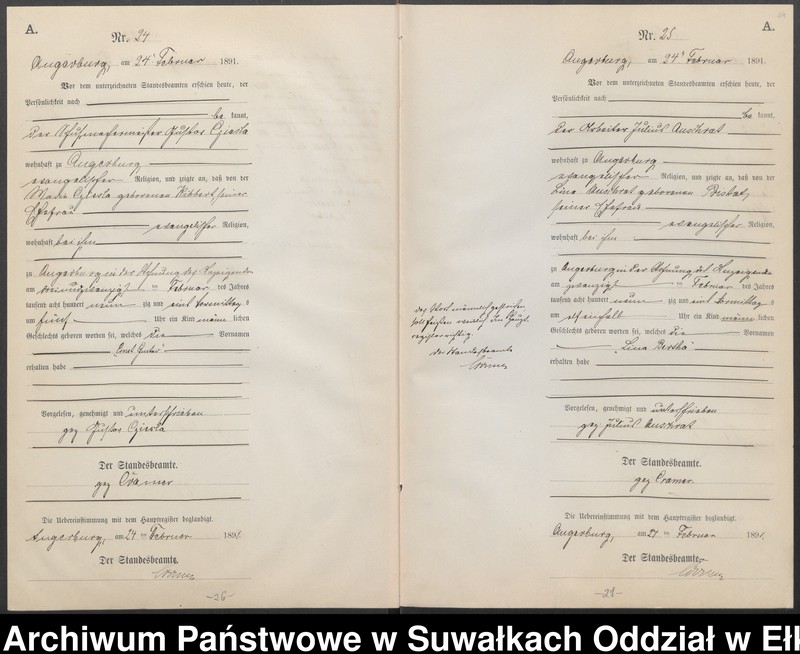 A.
Nr. 24
Angerburg, am 24 Februar 1891.
Vor dem unterzeichneten Standesbeamten erschien heute, der
Persönlichkeit nach
be kannt,
der Schuhmachermeister Gustav Cziesla
wohnhaft zu Angerburg
evangelischer Religion, und zeigte an, daß von der
Maria Cziesla geborenen seiner
Ehefrau
evangelischer Religion,
wohnhaft bei ihm
zu Angerburg in der Wohnung des Anzeigenden
am ten Februar des Jahres
tausend acht hundert neun zig und eins Vormittag s
um fünf Uhr ein Kind männ lichen
Geschlechts geboren worden sei, welches die Vornamen
Ernst
erhalten habe
Vorgelesen, genehmigt und unterschrieben
gez Gustav Cziesla
Der Standesbeamte.
gez Cramer
Die Uebereinstimmung mit dem Hauptregister beglaubigt.
Angerburg, am 24 ten Februar 1891.
Der Standesbeamte.
Cramer
-26-
A.
Nr. 25
Angerburg, am 24 Februar 1891.
Vor dem unterzeichneten Standesbeamten erschien heute, der
Persönlichkeit nach
be kannt,
der Arbeiter Julius Auschrat
wohnhaft zu Angerburg
evangelischer Religion, und zeigte an, daß von der
Lina Auschrat geborenen
seiner Ehefrau
evangelischer Religion,
wohnhaft bei ihm
zu Angerburg in der Wohnung des Anzeigenden
am ten Februar des Jahres
tausend acht hundert neun zig und eins Vormittag s
um Uhr ein Kind männ lichen
Geschlechts geboren worden sei, welches die Vornamen
Lina Bertha
erhalten habe
das Wort männ
der Standesbeamte
Cramer
Vorgelesen, genehmigt und unterschrieben
gez Julius Auschrat
Der Standesbeamte.
gez Cramer
Die Uebereinstimmung mit dem Hauptregister beglaubigt.
Angerburg, am 24 ten Februar 1891.
Der Standesbeamte.
Cramer
Archiwum Państwowe w Suwałkach Oddział w Ełk